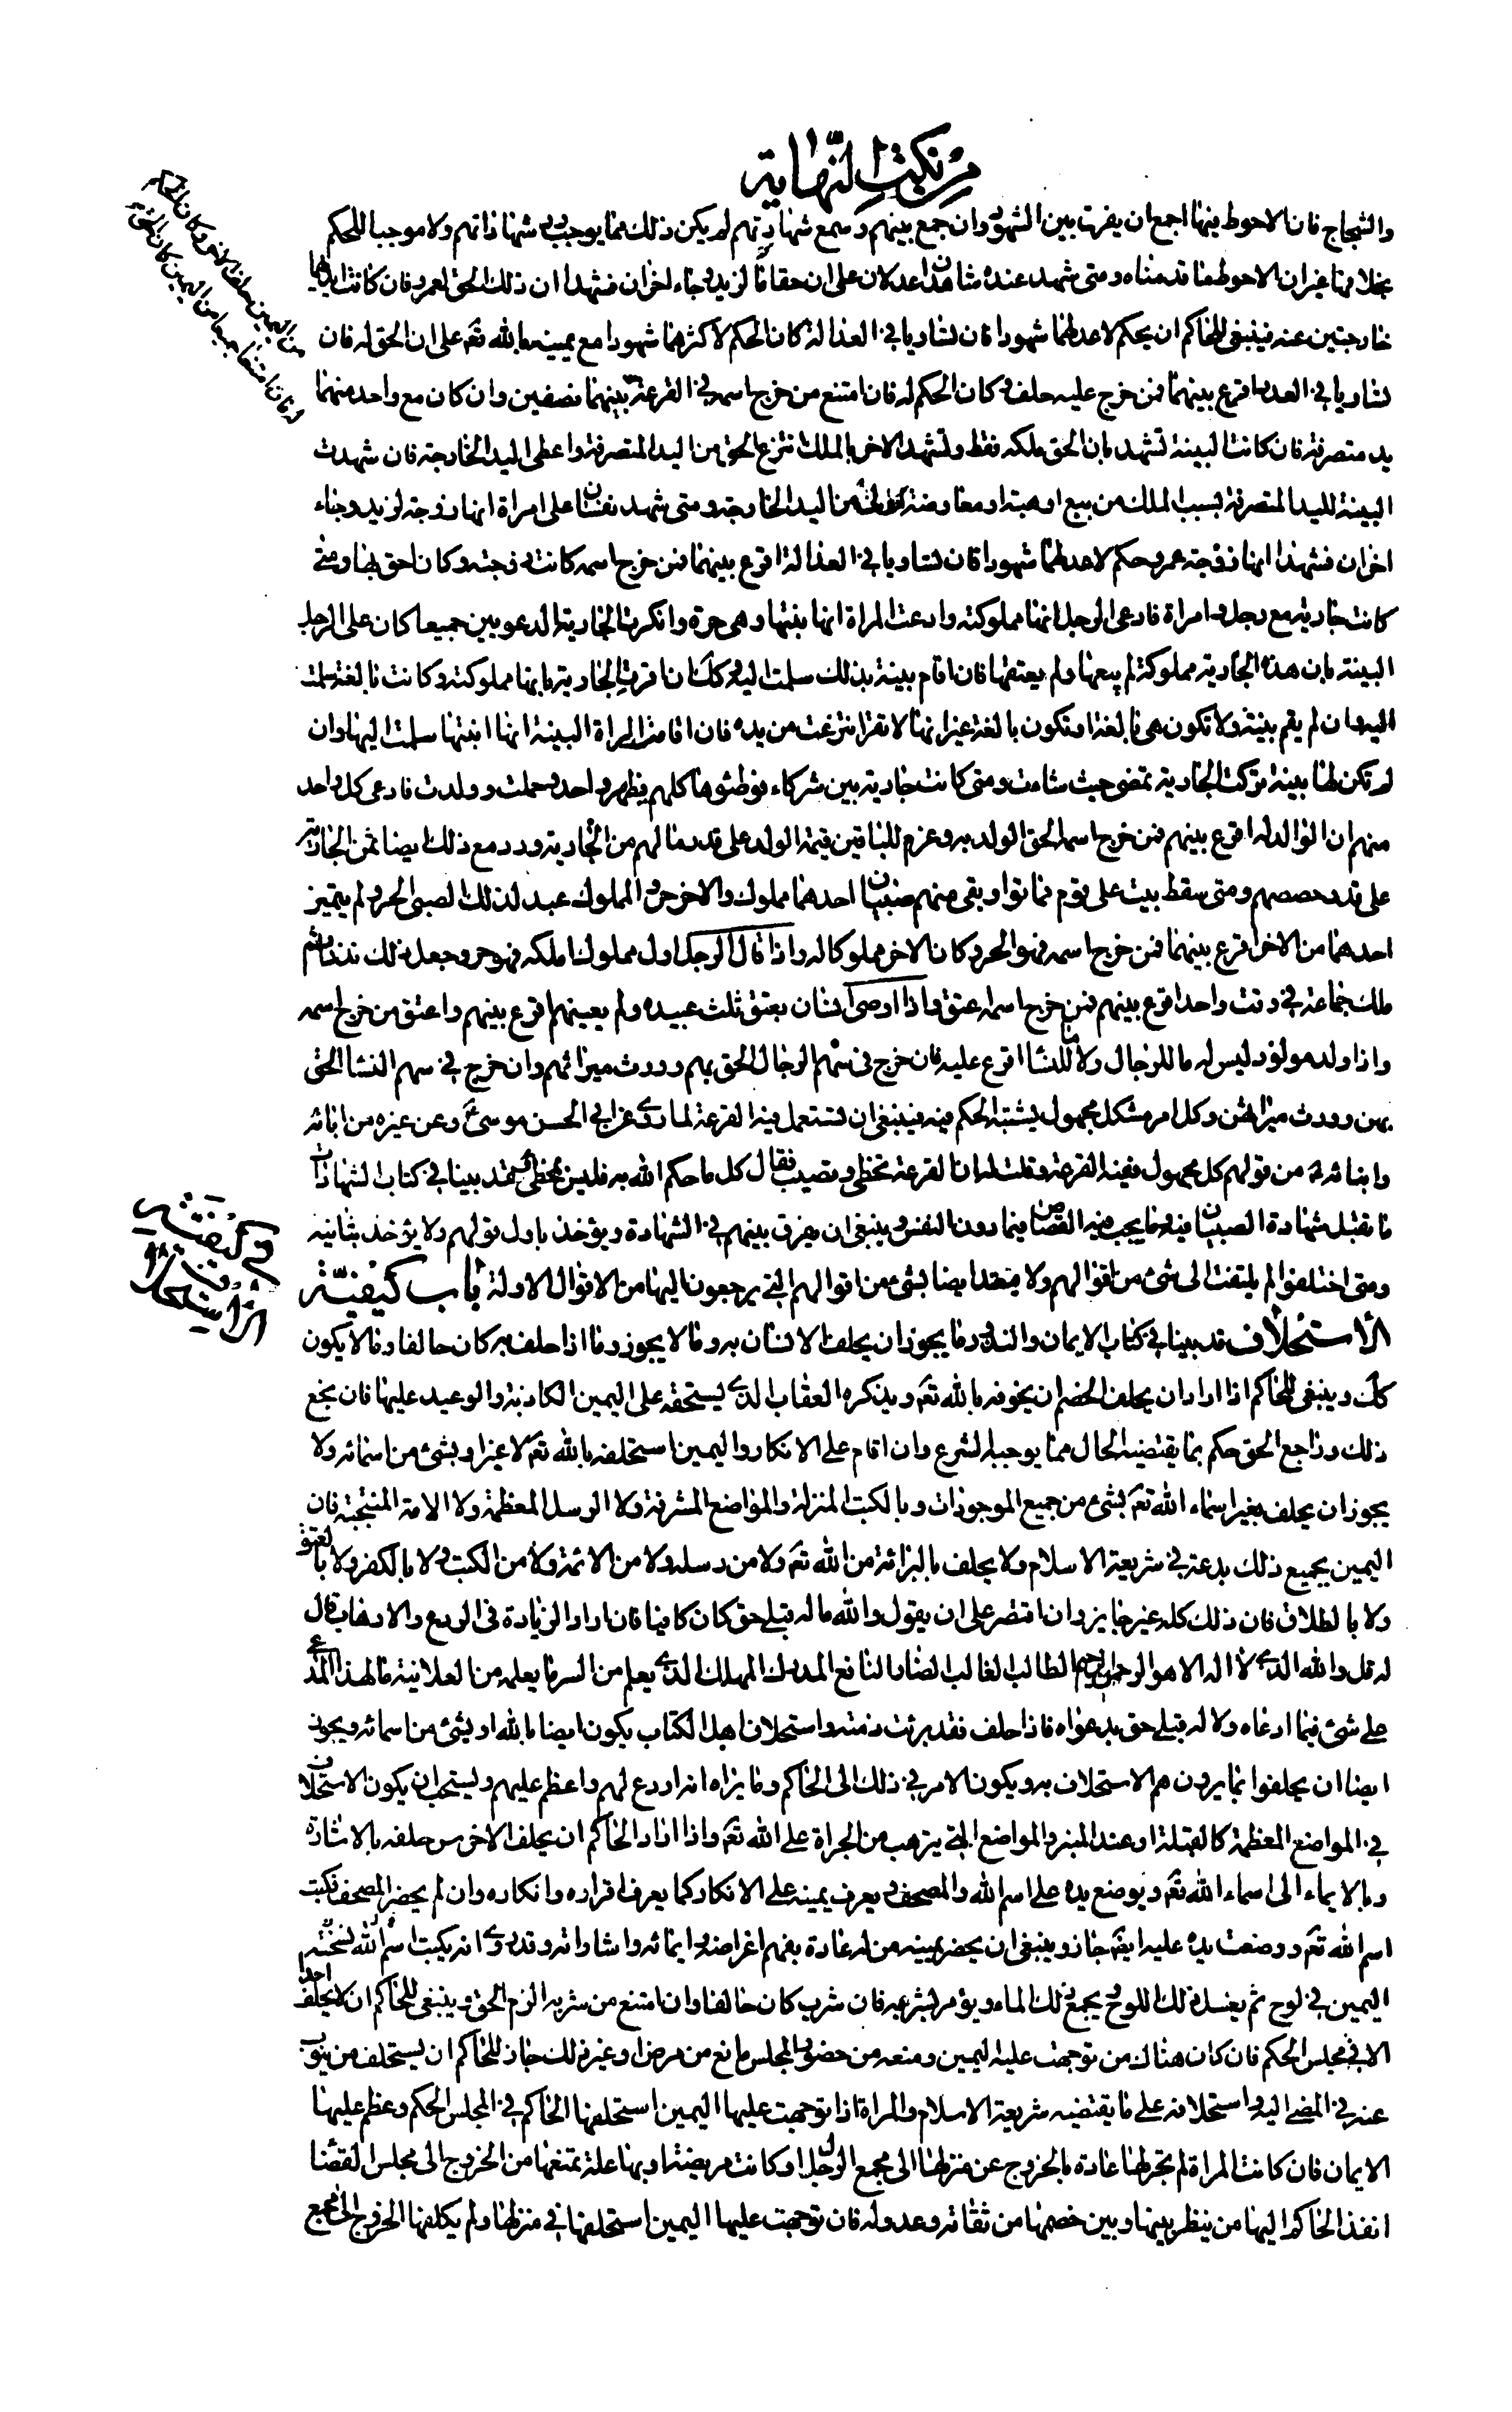 من نكت النهاية
والشجاج فان الاحوط فيها اجمع ان يفرق بين الشهود وان جمع بينهم وسمع شهادتهم لم يكن ذلك مما يوجب رد شهاداتهم ولا موجبا للحكم
بخلافها غير ان الاحوط ما قدمناه ومتى شهد عنده شاهدان عدلان على ان حقا ما لزيد وجاء اخران فشهدا ان ذلك الحق لعمرو فان كانت ايديهما
خارجتين عنه فينبغي للحاكم ان يحكم لاعدلهما شهودا فان تساويا في العدالة كان الحكم لاكثرهما شهودا مع يمينه بالله تعم على ان الحق له فان
تساويا في العدد اقرع بينهما فمن خرج عليه حلف وكان الحكم له فان امتنع من خرج اسمه في القرعة بينهما نصفين وان كان مع واحد منهما
يد متصرفة فان كانت البينة تشهد بان الحق ملكه فقط وتشهد الاخر بالملك نتزع الحق من اليد المتصرفة واعطى اليد الخارجة فان شهدت
البينة لليد المتصرفة بسبب الملك من بيع او هبة او معاوضة كانت اولى من اليد الخارجة ومتى شهد نفسان على امراة انها زوجة لزيد وجاء
اخران فشهدا انها زوجة عمرو حكم لاعدلهما شهودا فان تساويا في العدالة اقرع بينهما فمن خرج اسمه كانت زوجته وكان احق بها ومتى
كانت جارية مع رجل و امراة فادعى الرجل انها مملوكته وادعت المراة انها بنتها وهي حرة وانكرت الجارية الدعويين جميعا كان على الرجل
البينة بان هذه الجارية مملوكة لم يبعها ولم يعتقها فان اقام بينة بذلك سلمت اليه وكك ان اقرت الجارية بانها مملوكته وكانت بالغة سلمت
اليه وان لم يقم بينة ولا تكون هي بالغة او تكون بالغة غير انها لا تقر انتزعت من يده فان اقامت المراة البينة انها ابنتها سلمت اليها وان
لم تكن لها بينة تركت الجارية تمضي حيث شاءت ومتى كانت جارية بين شركاء فوطئوها كلهم في طهر واحد وحملت وولدت فادعى كل واحد
منهم ان الوالد له اقرع بينهم فمن خرج اسمه الحق الولد به وغرم للباقين قيمة الولد على قدر مالهم من الجارية ورد مع ذلك ايضا ثمن الجارية
على قدر حصصهم ومتى سقط بيت على قوم فماتوا وبقي منهم صبيان احدهما مملوك والاخر حر والمملوك عبد لذلك الصبي الحر ولم يتميز
احدهما من الاخر اقرع بينهما فمن خرج اسمه فهو الحر وكان الاخر مملوكا له واذا قال الرجل اول مملوك املكه فهو حر وجعل ذلك نذرا ثم
ملك جماعة في وقت واحد اقرع بينهم فمن خرج اسمه اعتق واذا اوصى انسان بعتق ثلث عبيده ولم يعينهم اقرع بينهم واعتق من خرج اسمه
واذا ولد مولود ليس له ما للرجال ولا ما للنساء اقرع عليه فان خرج في سهم الرجال الحق بهم وورث ميراثهم وان خرج في سهم النساء الحق
بهن وورث ميراثهن وكل امر مشكل مجهول يشتبه الحكم فيه فينبغي ان تستعمل فيه القرعة لما روى عن ابي الحسن موسى ع وعن غيره من ابائه
وابنائه ع من قولهم كل مجهول ففيه القرعة وقلت له ان القرعة تخطي وتصيب فقال كل ما حكم الله به فليس بمخطئ وقد بينا في كتاب الشهادات
ما تقبل شهادة الصبيان فيه وما يجب فيه القصاص فيما دون النفس وينبغي ان يفرق بينهم في الشهادة ويؤخذ باول قولهم ولا يؤخذ بثانيه
ومتى اختلفوا لم يلتفت الى شئ من اقوالهم ولا يعتد ايضا بشئ من اقوالهم التي يرجعون اليها من الاقوال الاولة باب كيفية
الاستحلاف قد بينا في كتاب الايمان والنذور ما يجوز ان يحلف الانسان به وما لا يجوز وما اذا حلف به كان حالفا وما لا يكون
كك وينبغي للحاكم اذا اراد ان يحلف الخصم ان يخوفه بالله تعم ويذكره العقاب الذي يستحقه على اليمين الكاذبة والوعيد عليها فان نجع
ذلك وراجع الحق حكم بما يقتضيه الحال مما يوجبه الشرع وان اقام على الانكار واليمين استحلفه بالله تعم لا غير او بشئ من اسمائه ولا
يجوز ان يحلف بغير اسماء الله تعم بشئ من جميع الموجودات وبالكتب المنزلة والمواضع المشرفة ولا الرسل المعظمة ولا الائمة المنتجبة فان
اليمين بجميع ذلك بدعة في شريعة الاسلام ولا يحلف بالبرائة من الله تعم ولا من رسله ولا من الائمة ولا من الكتب ولا بالكفر ولا بالعتق
ولا بالطلاق فان ذلك كله غير جايز وان اقتصر على ان يقول والله ما له قبلي حق كان كافيا فان اراد الزيادة في الردع والارهاب قال
له قل والله الذي لا اله الا هو الرحمن الرحيم الطالب الغالب الضار النافع المدرك المهلك الذي يعلم من السر ما يعلمه من العلانية ما لهذا المدعي
علي شئ فيما ادعاه ولا له قبلي حق بدعواه فاذا حلف فقد برئت ذمته واستحلاف اهل الكتاب يكون ايضا بالله او بشئ من اسمائه ويجوز
ايضا ان يحلفوا بما يرون هم الاستحلاف به ويكون الامر في ذلك الى الحاكم وما يراه انه اردع لهم واعظم عليهم ويستحب ان يكون الاستحلاف
في المواضع المعظمة كالقبلة او عند المنبر والمواضع التي يترهب من الجراة على الله تعم واذا اراد الحاكم ان يحلف الاخرس حلفه بالاشارة
وبالايماء الى اسماء الله تعم ويوضع يده على اسم الله والمصحف ويعرف يمينه على الانكار كما يعرف اقراره وانكاره وان لم يحضر المصحف فكتب
اسم الله تعم ووضعت يده عليه ايضا جاز وينبغي ان يحضر يمينه من له عادة بفهم اغراضه وايمائه واشاراته وقد روى انه يكتب اسم الله نسخة
اليمين في لوح ثم يغسل ذلك اللوح ويجمع ذلك الماء ويؤمر بشربه فان شرب كان حالفا وان امتنع من شربه الزم الحق وينبغي للحاكم ان لا يحلف احدا
الا في مجلس الحكم فان كان هناك من توجهت عليه اليمين ومنعه من حضور المجلس مانع من مرض او غير ذلك جاز للحاكم ان يستخلف من ينوب
عنه في المضي اليه واستحلافه على ما يقتضيه شريعة الاسلام والمراة اذا توجهت عليها اليمين استحلفها الحاكم في المجلس الحكم وعظم عليها
الايمان فان كانت المراة لم تجر لها عادة بالخروج عن منزلها الى مجمع الرجال او كانت مريضة او بها علة تمنعها من الخروج الى مجلس القضا
انفذ الحاكم اليها من ينظر بينها وبين خصمها من ثقاته وعدوله فان توجهت عليها اليمين استحلفها في منزلها ولم يكلفها الخروج الى مجمع
من اليمين حلف الاخر وكان الحكم
له فان امتنعا جميعا من اليمين كان الحق
في كيفية
الاستحلاف